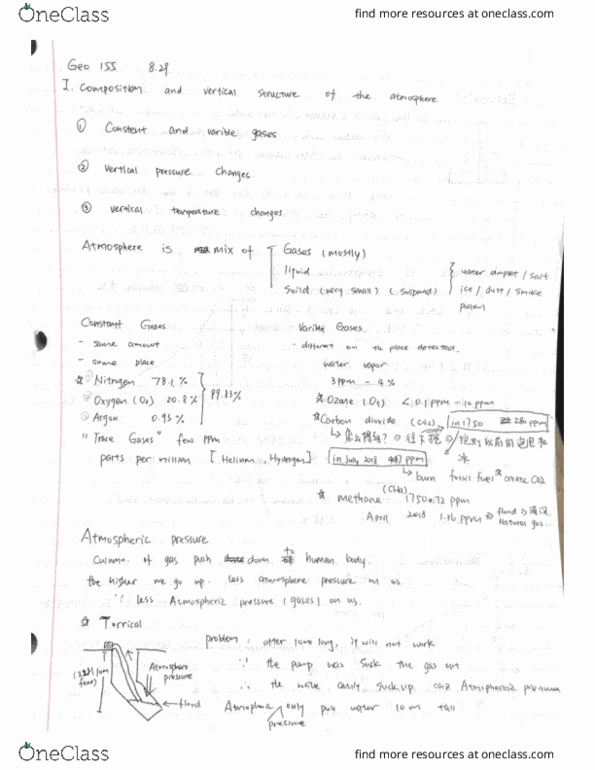 OneClass
find more resources at oneclass.com
Geo 155 8.29
I. Composition and vertical structure of the atmosphere
① Constent and varible gases
② vertical pressure changes.
③ vertical temperature changes.
Atmosphere is mix of Gases (mostly)
liquid
Soild (very small) (suspend)
water droplet / salt
ice / dust / smoke
Constant Gases
- same amount
- same place
Nitrogen 78.1 %
Oxygen (O₂) 20.8 %
Argon 0.93 %
"Trace Gases" few ppm
parts per million [Helium, Hydrogen]
Varible Gases.
- different on the place detected.
water vapor
3 ppm - 4 %
Ozane (O₃) < 0.1 ppm - 10 ppm
Carbon dioxide (CO₂) in 1750 280 ppm
in July 2018 ppm
burn fossil fuel create CO2
methane (CH4) 1750 0.72 ppm
April 2018 ppm
Natural gas.
Atmospheric pressure
Column of gas push down to human body.
the higher we go up. less atmosphere pressure on us.
∵ less Atmospheric pressure (gases) on us.
☆ Torrical
problem: after 10m long, it will not work
∵ the pump was suck the gas out
∴ the water suck up Atmospheric pressure
Atmospheric pressure only push water 10 m tall
Atmosphere pressure
OneClass
find more resources at oneclass.com